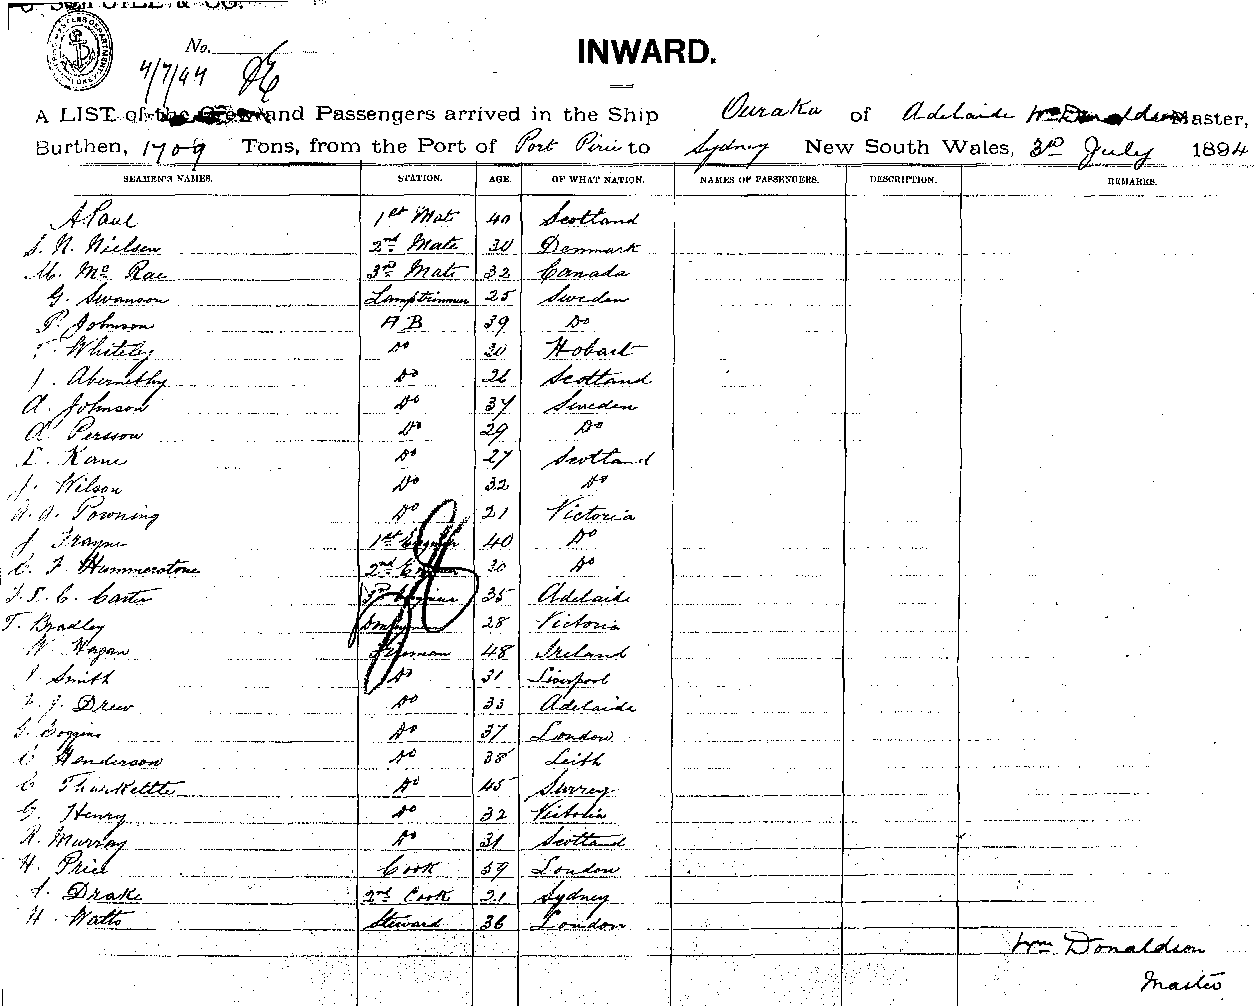 No.
4/7/94
INWARD.
A LIST of the Crew and Passengers arrived in the Ship Ouraka of Adelaide Wm Donaldson Master,
Burthen, 1709 Tons, from the Port of Port Pirie to Sydney New South Wales, 3rd July 1894
SEAMEN'S NAMES. STATION. AGE. OF WHAT NATION. NAMES OF PASSENGERS. DESCRIPTION. REMARKS.
A Paul 1st Mate 40 Scotland
S. N. Nielsen 2nd Mate 30 Denmark
M. Mc Rae 3rd Mate 32 Canada
G. Swanson Lamptrimmer 25 Sweden
P. Johnson A B 39 Do
Whiteley Do 30 Hobart
J. Abernethy Do 26 Scotland
A. Johnson Do 37 Sweden
A Persson Do 29 Do
Kane Do 27 Scotland
J. Wilson Do 32 Do
A. A. Powning Do 21 Victoria
J Trayne 1st Engineer 40 Do
C. F Hammerstone 2nd Engineer 30 Do
C. Carter 3rd Engineer 35 Adelaide
T. Bradley 28 Victoria
W Hagan Fireman 48 Ireland
Smith Do 31 Liverpool
J. Drew Do 33 Adelaide
Boggins Do 37 London
Henderson Do 38 Leith
C Thurkettle Do 45 Surrey
G. Henry Do 32 Victoria
R. Murray Do 31 Scotland
H. Price Cook 59 London
Drake 2nd Cook 21 Sydney
H. Watts Steward 36 London
Wm Donaldson
Master